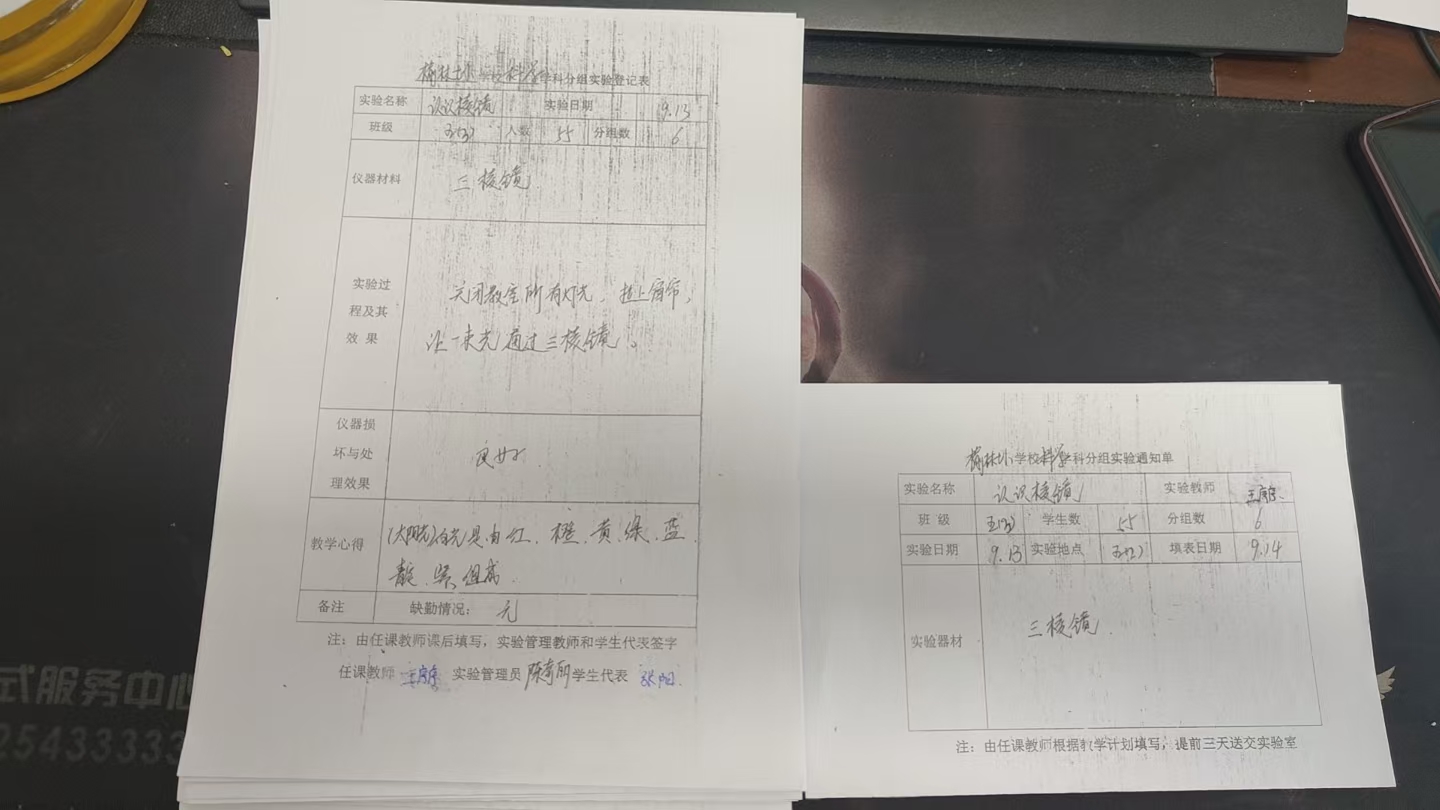 榆林小学校科学学科分组实验登记表
实验名称 认识棱镜 实验日期 9.13
班级 五(3) 人数 55 分组数 6
仪器材料 三棱镜
实验过程及其效果 关闭教室所有灯光，拉上窗帘，
让一束光通过三棱镜。
仪器损坏与处理效果 良好
教学心得 (太阳光)白光是由红、橙、黄、绿、蓝、
靛、紫组成
备注 缺勤情况：无
注：由任课教师课后填写，实验管理教师和学生代表签字
任课教师 实验管理员 学生代表 张阳
榆林小学校科学科分组实验通知单
实验名称 认识棱镜 实验教师
班 级 五(3) 学生数 55 分组数 6
实验日期 9.13 实验地点 五(2) 填表日期 9.14
实验器材 三棱镜
注：由任课教师根据教学计划填写，提前三天送交实验室
式服务中心
2543333